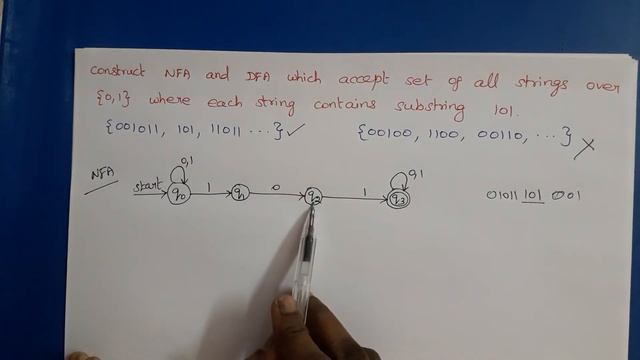 construct NFA and DFA which accept set of all strings over
{0,1} where each string contains substring 101.
{001011, 101, 11011 ...} ✓ {00100, 1100, 00110, ...} ✗
NFA
0,1 0,1
start q0 1 q1 0 q2 1 q3 01011 101 0001